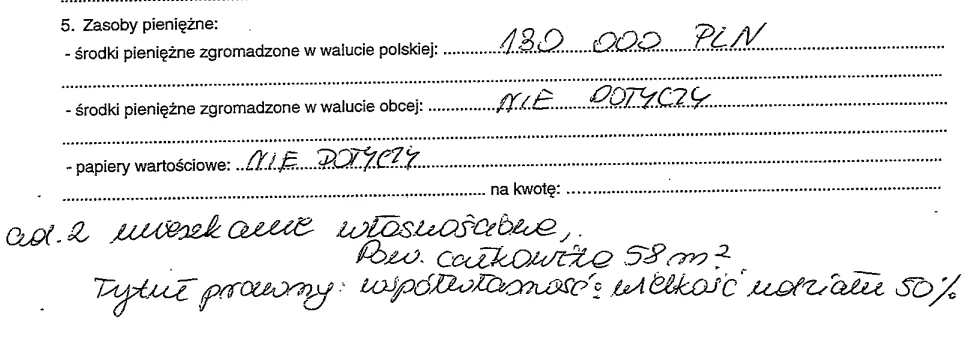 5. Zasoby pieniężne:
- środki pieniężne zgromadzone w walucie polskiej: 130 000 PLN
- środki pieniężne zgromadzone w walucie obcej: NIE DOTYCZY
- papiery wartościowe: NIE DOTYCZY
na kwotę:
ad. 2 mieszkanie własnościowe,
Pow. całkowita 58 m²
Tytuł prawny: współwłasność: wielkość udziału 50%